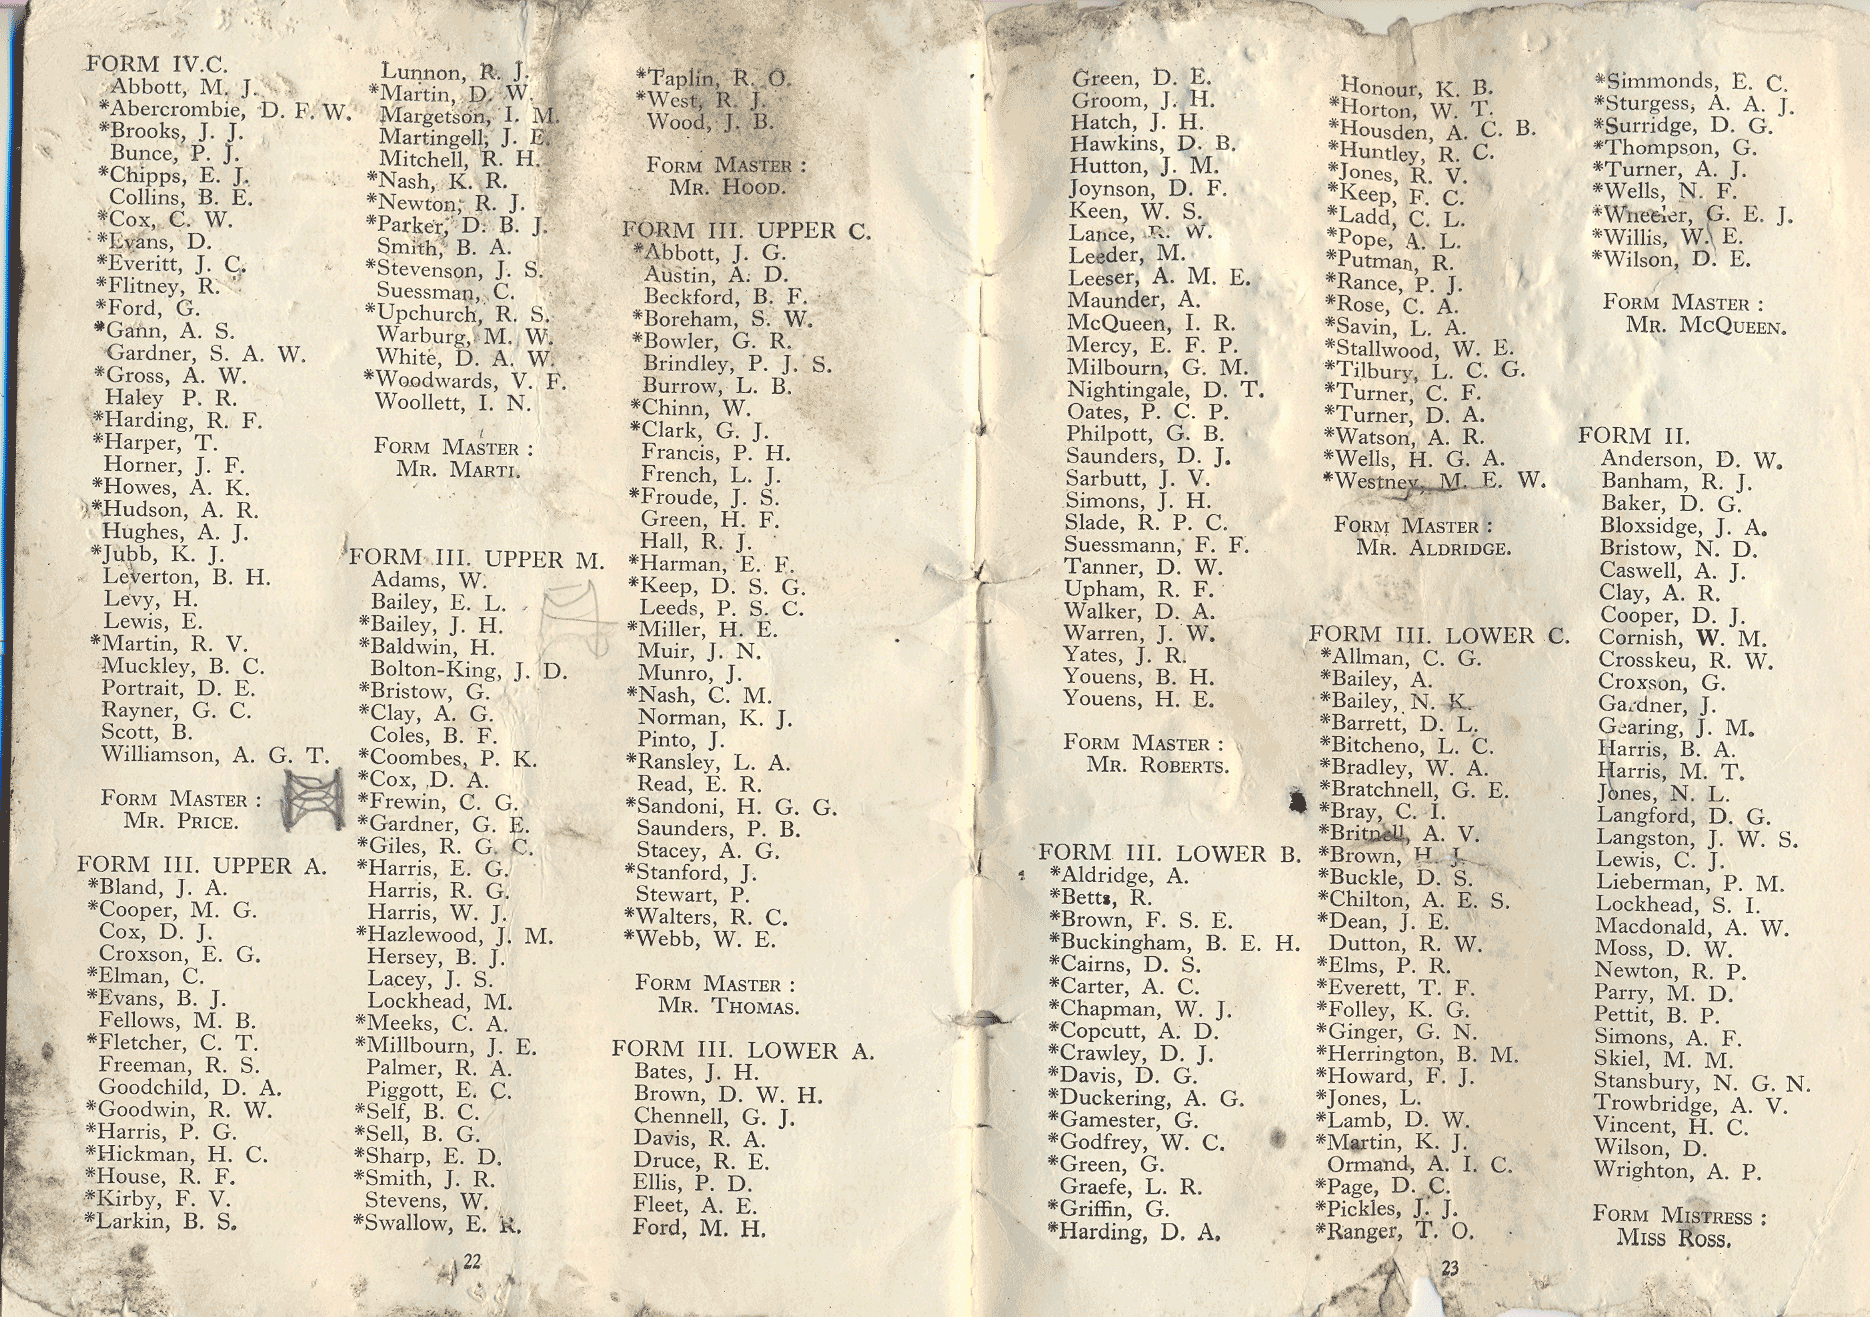 FORM IV.C.
Abbott, M. J.
*Abercrombie, D. F. W.
*Brooks, J. J.
Bunce, P. J.
*Chipps, E. J.
Collins, B. E.
*Cox, C. W.
*Evans, D.
*Everitt, J. C.
*Flitney, R.
*Ford, G.
*Gann, A. S.
Gardner, S. A. W.
*Gross, A. W.
Haley P. R.
*Harding, R. F.
*Harper, T.
Horner, J. F.
*Howes, A. K.
*Hudson, A. R.
Hughes, A. J.
*Jubb, K. J.
Leverton, B. H.
Levy, H.
Lewis, E.
*Martin, R. V.
Muckley, B. C.
Portrait, D. E.
Rayner, G. C.
Scott, B.
Williamson, A. G. T.
FORM MASTER :
MR. PRICE.
FORM III. UPPER A.
*Bland, J. A.
*Cooper, M. G.
Cox, D. J.
Croxson, E. G.
*Elman, C.
*Evans, B. J.
Fellows, M. B.
*Fletcher, C. T.
Freeman, R. S.
Goodchild, D. A.
*Goodwin, R. W.
*Harris, P. G.
*Hickman, H. C.
*House, R. F.
*Kirby, F. V.
*Larkin, B. S.
Lunnon, R. J.
*Martin, D. W.
Margetson, I. M.
Martingell, J. E.
Mitchell, R. H.
*Nash, K. R.
*Newton, R. J.
*Parker, D. B. J.
Smith, B. A.
*Stevenson, J. S.
Suessman, C.
*Upchurch, R. S.
Warburg, M. W.
White, D. A. W.
*Woodwards, V. F.
Woollett, I. N.
FORM MASTER :
MR. MARTI.
FORM III. UPPER M.
Adams, W.
Bailey, E. L.
*Bailey, J. H.
*Baldwin, H.
Bolton-King, J. D.
*Bristow, G.
*Clay, A. G.
Coles, B. F.
*Coombes, P. K.
*Cox, D. A.
*Frewin, C. G.
*Gardner, G. E.
*Giles, R. G. C.
*Harris, E. G.
Harris, R. G.
Harris, W. J.
*Hazlewood, J. M.
Hersey, B. J.
Lacey, J. S.
Lockhead, M.
*Meeks, C. A.
*Millbourn, J. E.
Palmer, R. A.
Piggott, E. C.
*Self, B. C.
*Sell, B. G.
*Sharp, E. D.
*Smith, J. R.
Stevens, W.
*Swallow, E. R.
*Taplin, R. O.
*West, R. J.
Wood, J. B.
FORM MASTER :
MR. HOOD.
FORM III. UPPER C.
*Abbott, J. G.
Austin, A. D.
Beckford, B. F.
*Boreham, S. W.
*Bowler, G. R.
Brindley, P. J. S.
Burrow, L. B.
*Chinn, W.
*Clark, G. J.
Francis, P. H.
French, L. J.
*Froude, J. S.
Green, H. F.
Hall, R. J.
*Harman, E. F.
*Keep, D. S. G.
Leeds, P. S. C.
*Miller, H. E.
Muir, J. N.
Munro, J.
*Nash, C. M.
Norman, K. J.
Pinto, J.
*Ransley, L. A.
Read, E. R.
*Sandoni, H. G. G.
Saunders, P. B.
Stacey, A. G.
*Stanford, J.
Stewart, P.
*Walters, R. C.
*Webb, W. E.
FORM MASTER :
MR. THOMAS.
FORM III. LOWER A.
Bates, J. H.
Brown, D. W. H.
Chennell, G. J.
Davis, R. A.
Druce, R. E.
Ellis, P. D.
Fleet, A. E.
Ford, M. H.
22
Green, D. E.
Groom, J. H.
Hatch, J. H.
Hawkins, D. B.
Hutton, J. M.
Joynson, D. F.
Keen, W. S.
Lance, R. W.
Leeder, M.
Leeser, A. M. E.
Maunder, A.
McQueen, I. R.
Mercy, E. F. P.
Milbourn, G. M.
Nightingale, D. T.
Oates, P. C. P.
Philpott, G. B.
Saunders, D. J.
Sarbutt, J. V.
Simons, J. H.
Slade, R. P. C.
Suessmann, F. F.
Tanner, D. W.
Upham, R. F.
Walker, D. A.
Warren, J. W.
Yates, J. R.
Youens, B. H.
Youens, H. E.
FORM MASTER :
MR. ROBERTS.
FORM III. LOWER B.
*Aldridge, A.
*Betts, R.
*Brown, F. S. E.
*Buckingham, B. E. H.
*Cairns, D. S.
*Carter, A. C.
*Chapman, W. J.
*Copcutt, A. D.
*Crawley, D. J.
*Davis, D. G.
*Duckering, A. G.
*Gamester, G.
*Godfrey, W. C.
*Green, G.
Graefe, L. R.
*Griffin, G.
*Harding, D. A.
Honour, K. B.
*Horton, W. T.
*Housden, A. C. B.
*Huntley, R. C.
*Jones, R. V.
*Keep, F. C.
*Ladd, C. L.
*Pope, A. L.
*Putman, R.
*Rance, P. J.
*Rose, C. A.
*Savin, L. A.
*Stallwood, W. E.
*Tilbury, L. C. G.
*Turner, C. F.
*Turner, D. A.
*Watson, A. R.
*Wells, H. G. A.
*Westney, M. E. W.
FORM MASTER :
MR. ALDRIDGE.
FORM III. LOWER C.
*Allman, C. G.
*Bailey, A.
*Bailey, N. K.
*Barrett, D. L.
*Bitcheno, L. C.
*Bradley, W. A.
*Bratchnell, G. E.
*Bray, C. I.
*Britnell, A. V.
*Brown, H. J.
*Buckle, D. S.
*Chilton, A. E. S.
*Dean, J. E.
Dutton, R. W.
*Elms, P. R.
*Everett, T. F.
*Folley, K. G.
*Ginger, G. N.
*Herrington, B. M.
*Howard, F. J.
*Jones, L.
*Lamb, D. W.
*Martin, K. J.
Ormand, A. I. C.
*Page, D. C.
*Pickles, J. J.
*Ranger, T. O.
*Simmonds, E. C.
*Sturgess, A. A. J.
*Surridge, D. G.
*Thompson, G.
*Turner, A. J.
*Wells, N. F.
*Wheeler, G. E. J.
*Willis, W. E.
*Wilson, D. E.
FORM MASTER :
MR. MCQUEEN.
FORM II.
Anderson, D. W.
Banham, R. J.
Baker, D. G.
Bloxsidge, J. A.
Bristow, N. D.
Caswell, A. J.
Clay, A. R.
Cooper, D. J.
Cornish, W. M.
Crosskeu, R. W.
Croxson, G.
Gardner, J.
Gearing, J. M.
Harris, B. A.
Harris, M. T.
Jones, N. L.
Langford, D. G.
Langston, J. W. S.
Lewis, C. J.
Lieberman, P. M.
Lockhead, S. I.
Macdonald, A. W.
Moss, D. W.
Newton, R. P.
Parry, M. D.
Pettit, B. P.
Simons, A. F.
Skiel, M. M.
Stansbury, N. G. N.
Trowbridge, A. V.
Vincent, H. C.
Wilson, D.
Wrighton, A. P.
FORM MISTRESS :
MISS ROSS.
23